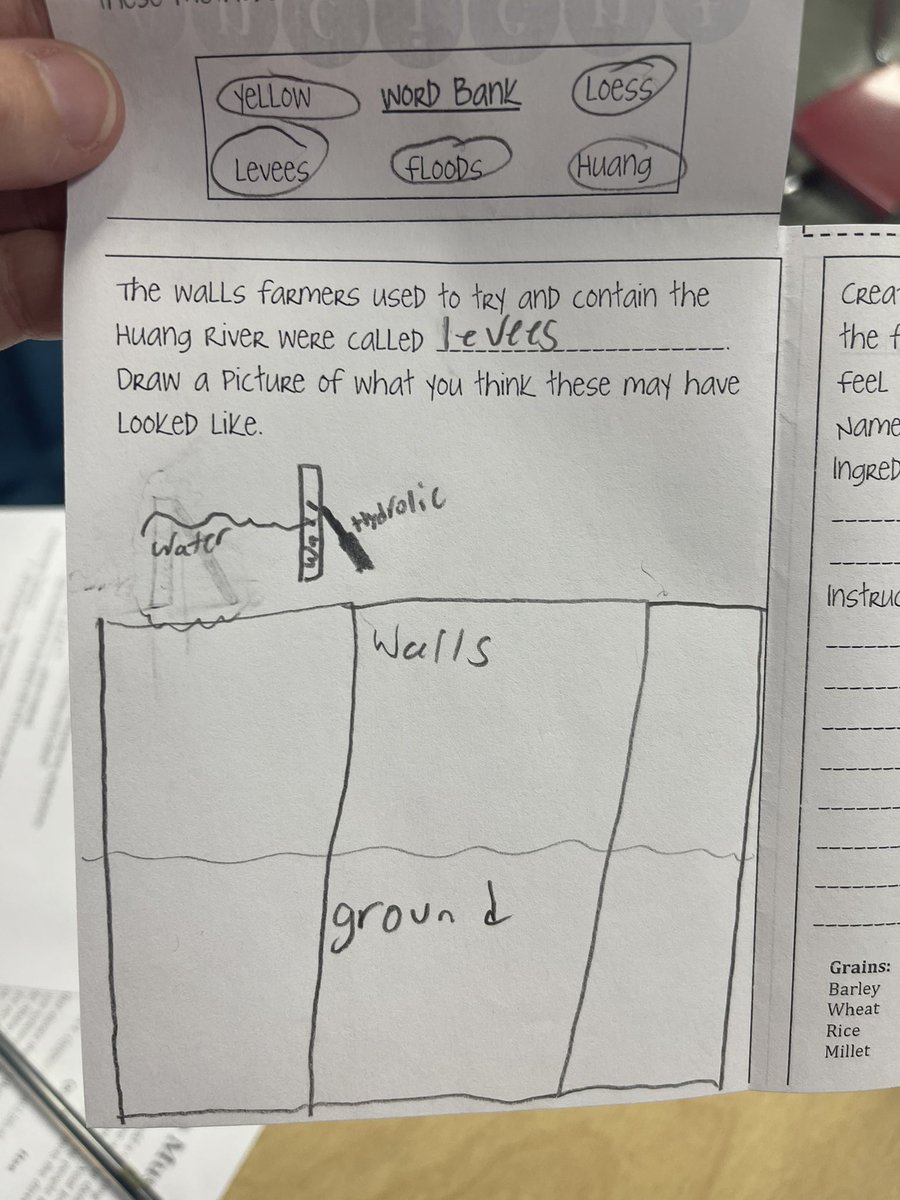 YELLOW WORD BANK LOESS
LEVEES FLOODS HUANG
THE WALLS FARMERS USED TO TRY AND CONTAIN THE
HUANG RIVER WERE CALLED levees.
DRAW A PICTURE OF WHAT YOU THINK THESE MAY HAVE
LOOKED LIKE.
Water
Hydrolic
Walls
ground
CREA
THE F
FEEL
NAME
INGRED
INSTRUC
Grains:
Barley
Wheat
Rice
Millet